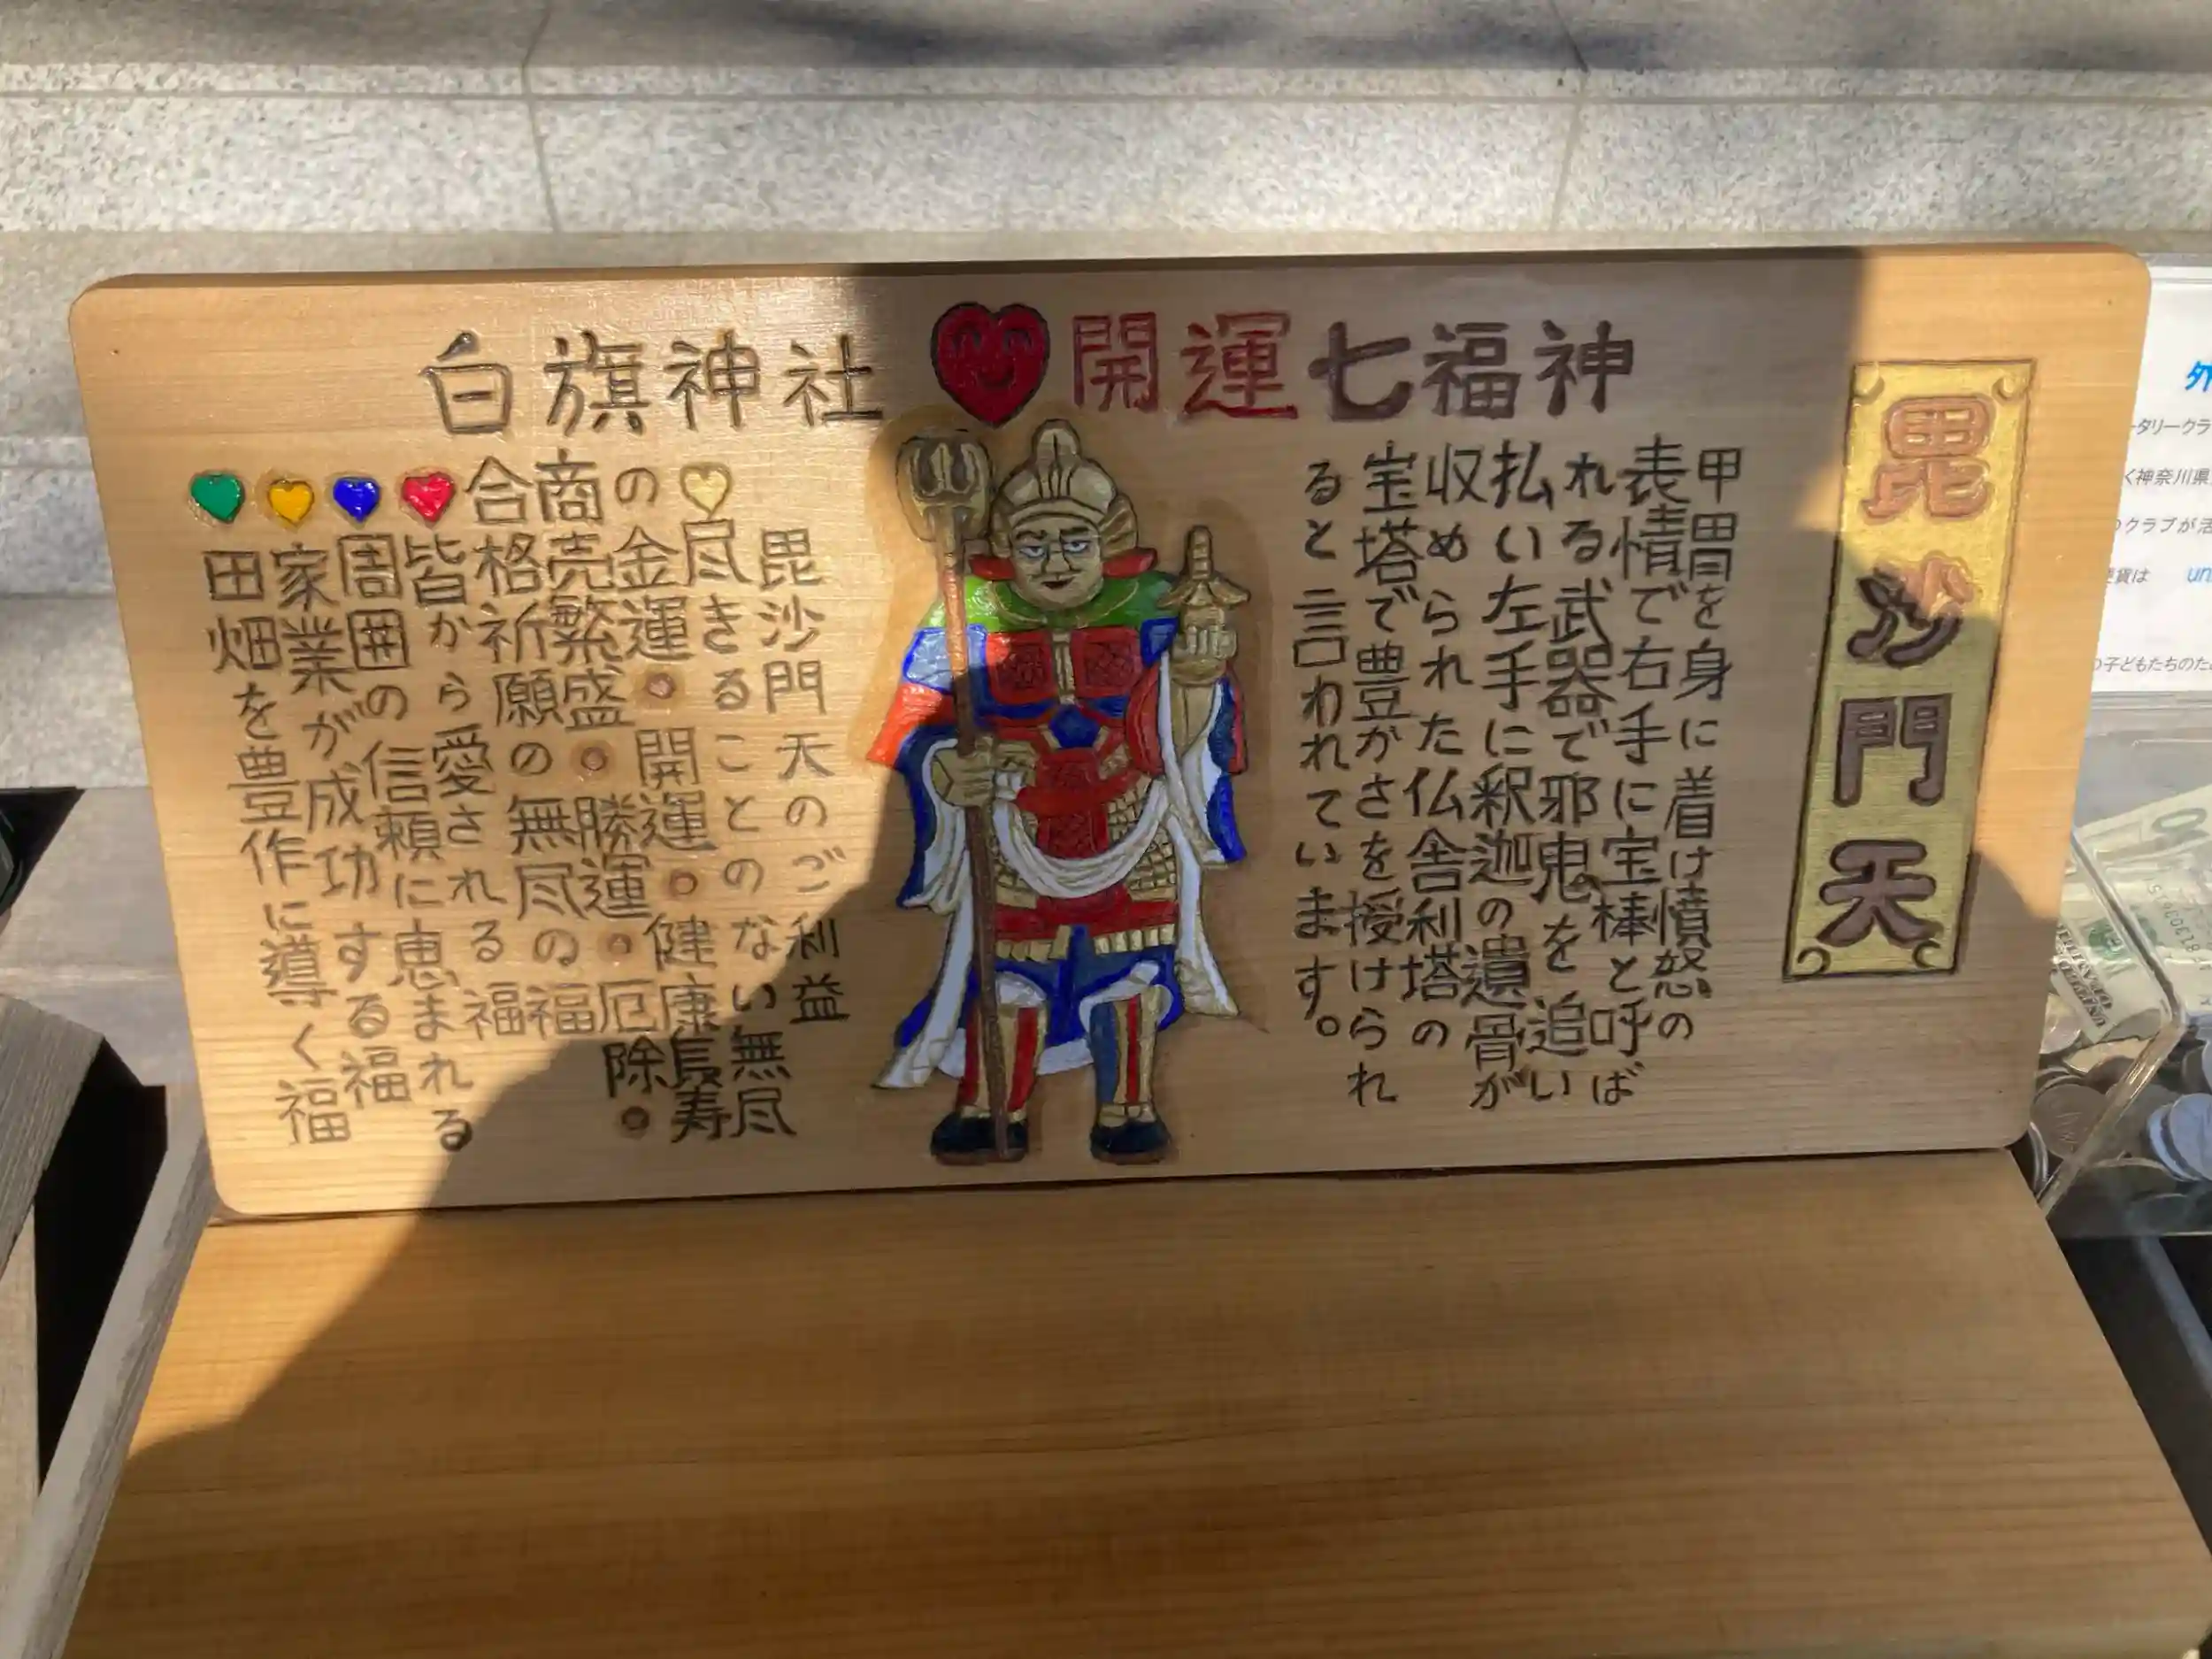 白旗神社 開運七福神
毘沙門天
甲冑を身に着け憤怒の
表情で右手に宝棒と呼ば
れる武器で邪鬼を追い
払い左手に釈迦の遺骨が
収められた仏舎利塔の
宝塔で豊かさを授けられ
ると言われています。
毘沙門天のご利益
尽きることのない無尽
の金運・開運・健康長寿
商売繁盛・勝運・厄除・
合格祈願の無尽の福
皆から愛される福
周囲の信頼に恵まれる
家業が成功する福
田畑を豊作に導く福
外
ータリークラ
く神奈川県
のクラブが活
un
の子どもたちのため